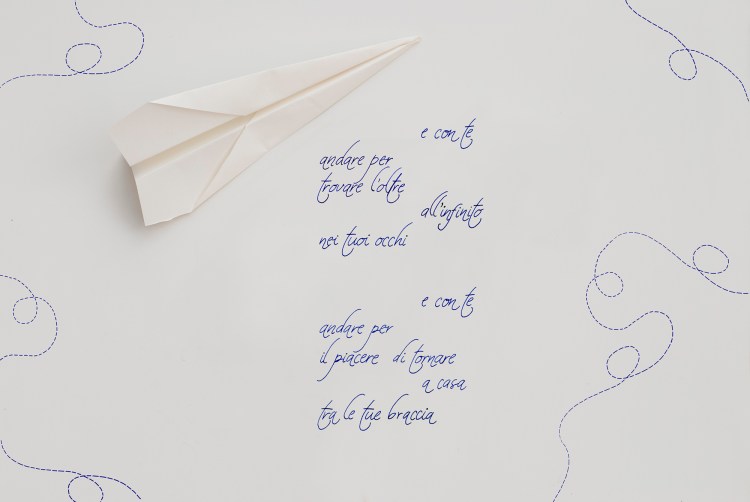 e con te
andare per
trovare l'oltre
all'infinito
nei tuoi occhi
e con te
andare per
il piacere di tornare
a casa
tra le tue braccia